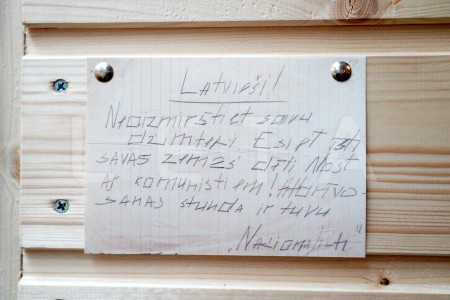 Latvieši!
Neaizmirstiet savu
dzimteni Esiet īsti
savas zemes dēli Nost
ar komunistiem! Atbrīvo-
šanas stunda ir tuvu
„Nacionālisti"